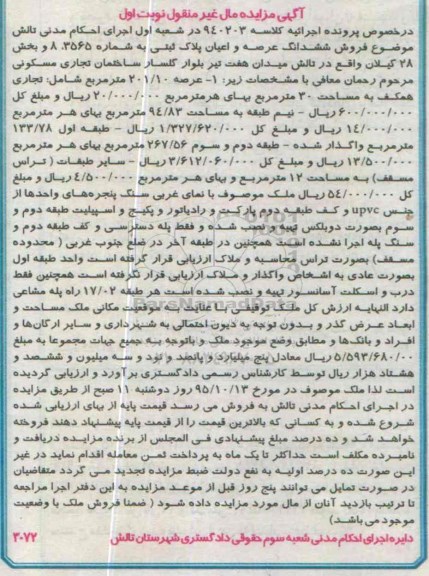 آگهی مزایده مال غیر منقول نوبت اول
درخصوص پرونده اجرائیه کلاسه ۹۴۰۲۰۳ در شعبه اول اجرای احکام مدنی تالش
موضوع فروش ششدانگ عرصه و اعیان پلاک ثبتی به شماره ۸.۳۵۶۵ و بخش
۲۸ گیلان واقع در تالش میدان هفت تیر بلوار گلسار ساختمان تجاری مسکونی
مرحوم رحمان معافی با مشخصات زیر: ۱- عرصه ۲۰۱/۱۰ مترمربع شامل: تجاری
همکف به مساحت ۳۰ مترمربع بهای هرمترمربع ۲۰/۰۰۰/۰۰۰ ریال و مبلغ کل
۶۰۰/۰۰۰/۰۰۰ ریال - نیم طبقه به مساحت ۹۴/۸۳ مترمربع بهای هر مترمربع
۱۴/۰۰۰/۰۰۰ ریال و مبلغ کل ۱/۳۲۷/۶۲۰/۰۰۰ ریال - طبقه اول ۱۳۳/۷۸
مترمربع واگذار شده - طبقه دوم و سوم ۲۶۷/۵۶ مترمربع بهای هر مترمربع
۱۳/۵۰۰/۰۰۰ ریال و مبلغ کل ۳/۶۱۲/۰۶۰/۰۰۰ ریال - سایر طبقات ( تراس
مسقف) به مساحت ۱۲ مترمربع و بهای هر مترمربع ۴/۵۰۰/۰۰۰ ریال و مبلغ
کل ۵۴/۰۰۰/۰۰۰ ریال ملک موصوف با نمای غربی سنگ پنجره‌های واحدها از
جنس upvc و کف طبقه دوم پارکت و رادیاتور و پکیج و اسپیلیت طبقه دوم و
سوم بصورت دوبلکس تهیه و نصب شده و فقط پله دسترسی و کف طبقه دوم و
سنگ پله اجرا نشده است همچنین در طبقه آخر در ضلع جنوب غربی ( محدوده
مسقف) بصورت تراس محاسبه و ملاک ارزیابی قرار گرفته است واحد طبقه اول
بصورت عادی به اشخاص واگذار و ملاک ارزیابی قرار نگرفته است همچنین فقط
درب و اسکلت آسانسور تهیه و نصب شده است هر طبقه ۱۷/۰۲ راه پله مشاعی
دارد النهایه ارزش کل ملک توقیفی با عنایت به موقعیت مکانی ملک مساحت و
ابعاد عرض گذر و بدون توجه به دیون احتمالی به شهرداری و سایر ارگان‌ها و
افراد و بانک‌ها و مطابق وضع موجود ملک و باتوجه به جمیع جهات مجموعا به مبلغ
۵/۵۹۳/۶۸۰/۰۰ ریال معادل پنج میلیارد و پانصد و نود و سه میلیون و ششصد و
هشتاد هزار ریال توسط کارشناس رسمی دادگستری برآورد و ارزیابی گردیده
است لذا ملک موصوف در مورخ ۹۵/۱۰/۱۳ روز دوشنبه ۱۱ صبح از طریق مزایده
در اجرای احکام مدنی تالش به فروش می رسد قیمت پایه از بهای ارزیابی شده
شروع شده و به کسانی که بالاترین قیمت را از قیمت پایه پیشنهاد دهند فروخته
خواهد شد و ده درصد مبلغ پیشنهادی فی المجلس از برنده مزایده دریافت و
نامبرده مکلف است حداکثر تا یک ماه به پرداخت ثمن معامله اقدام نماید در غیر
این صورت ده درصد اولیه به نفع دولت ضبط مزایده تجدید می گردد متقاضیان
در صورت تمایل می توانند پنج روز قبل از موعد مزایده به این دفتر اجرا مراجعه
تا ترتیب بازدید آنان از مال مورد مزایده داده شود ( ضمنا فروش ملک با وضعیت
موجود می باشد)
دایره اجرای احکام مدنی شعبه سوم حقوقی دادگستری شهرستان تالش ۳۰۷۲